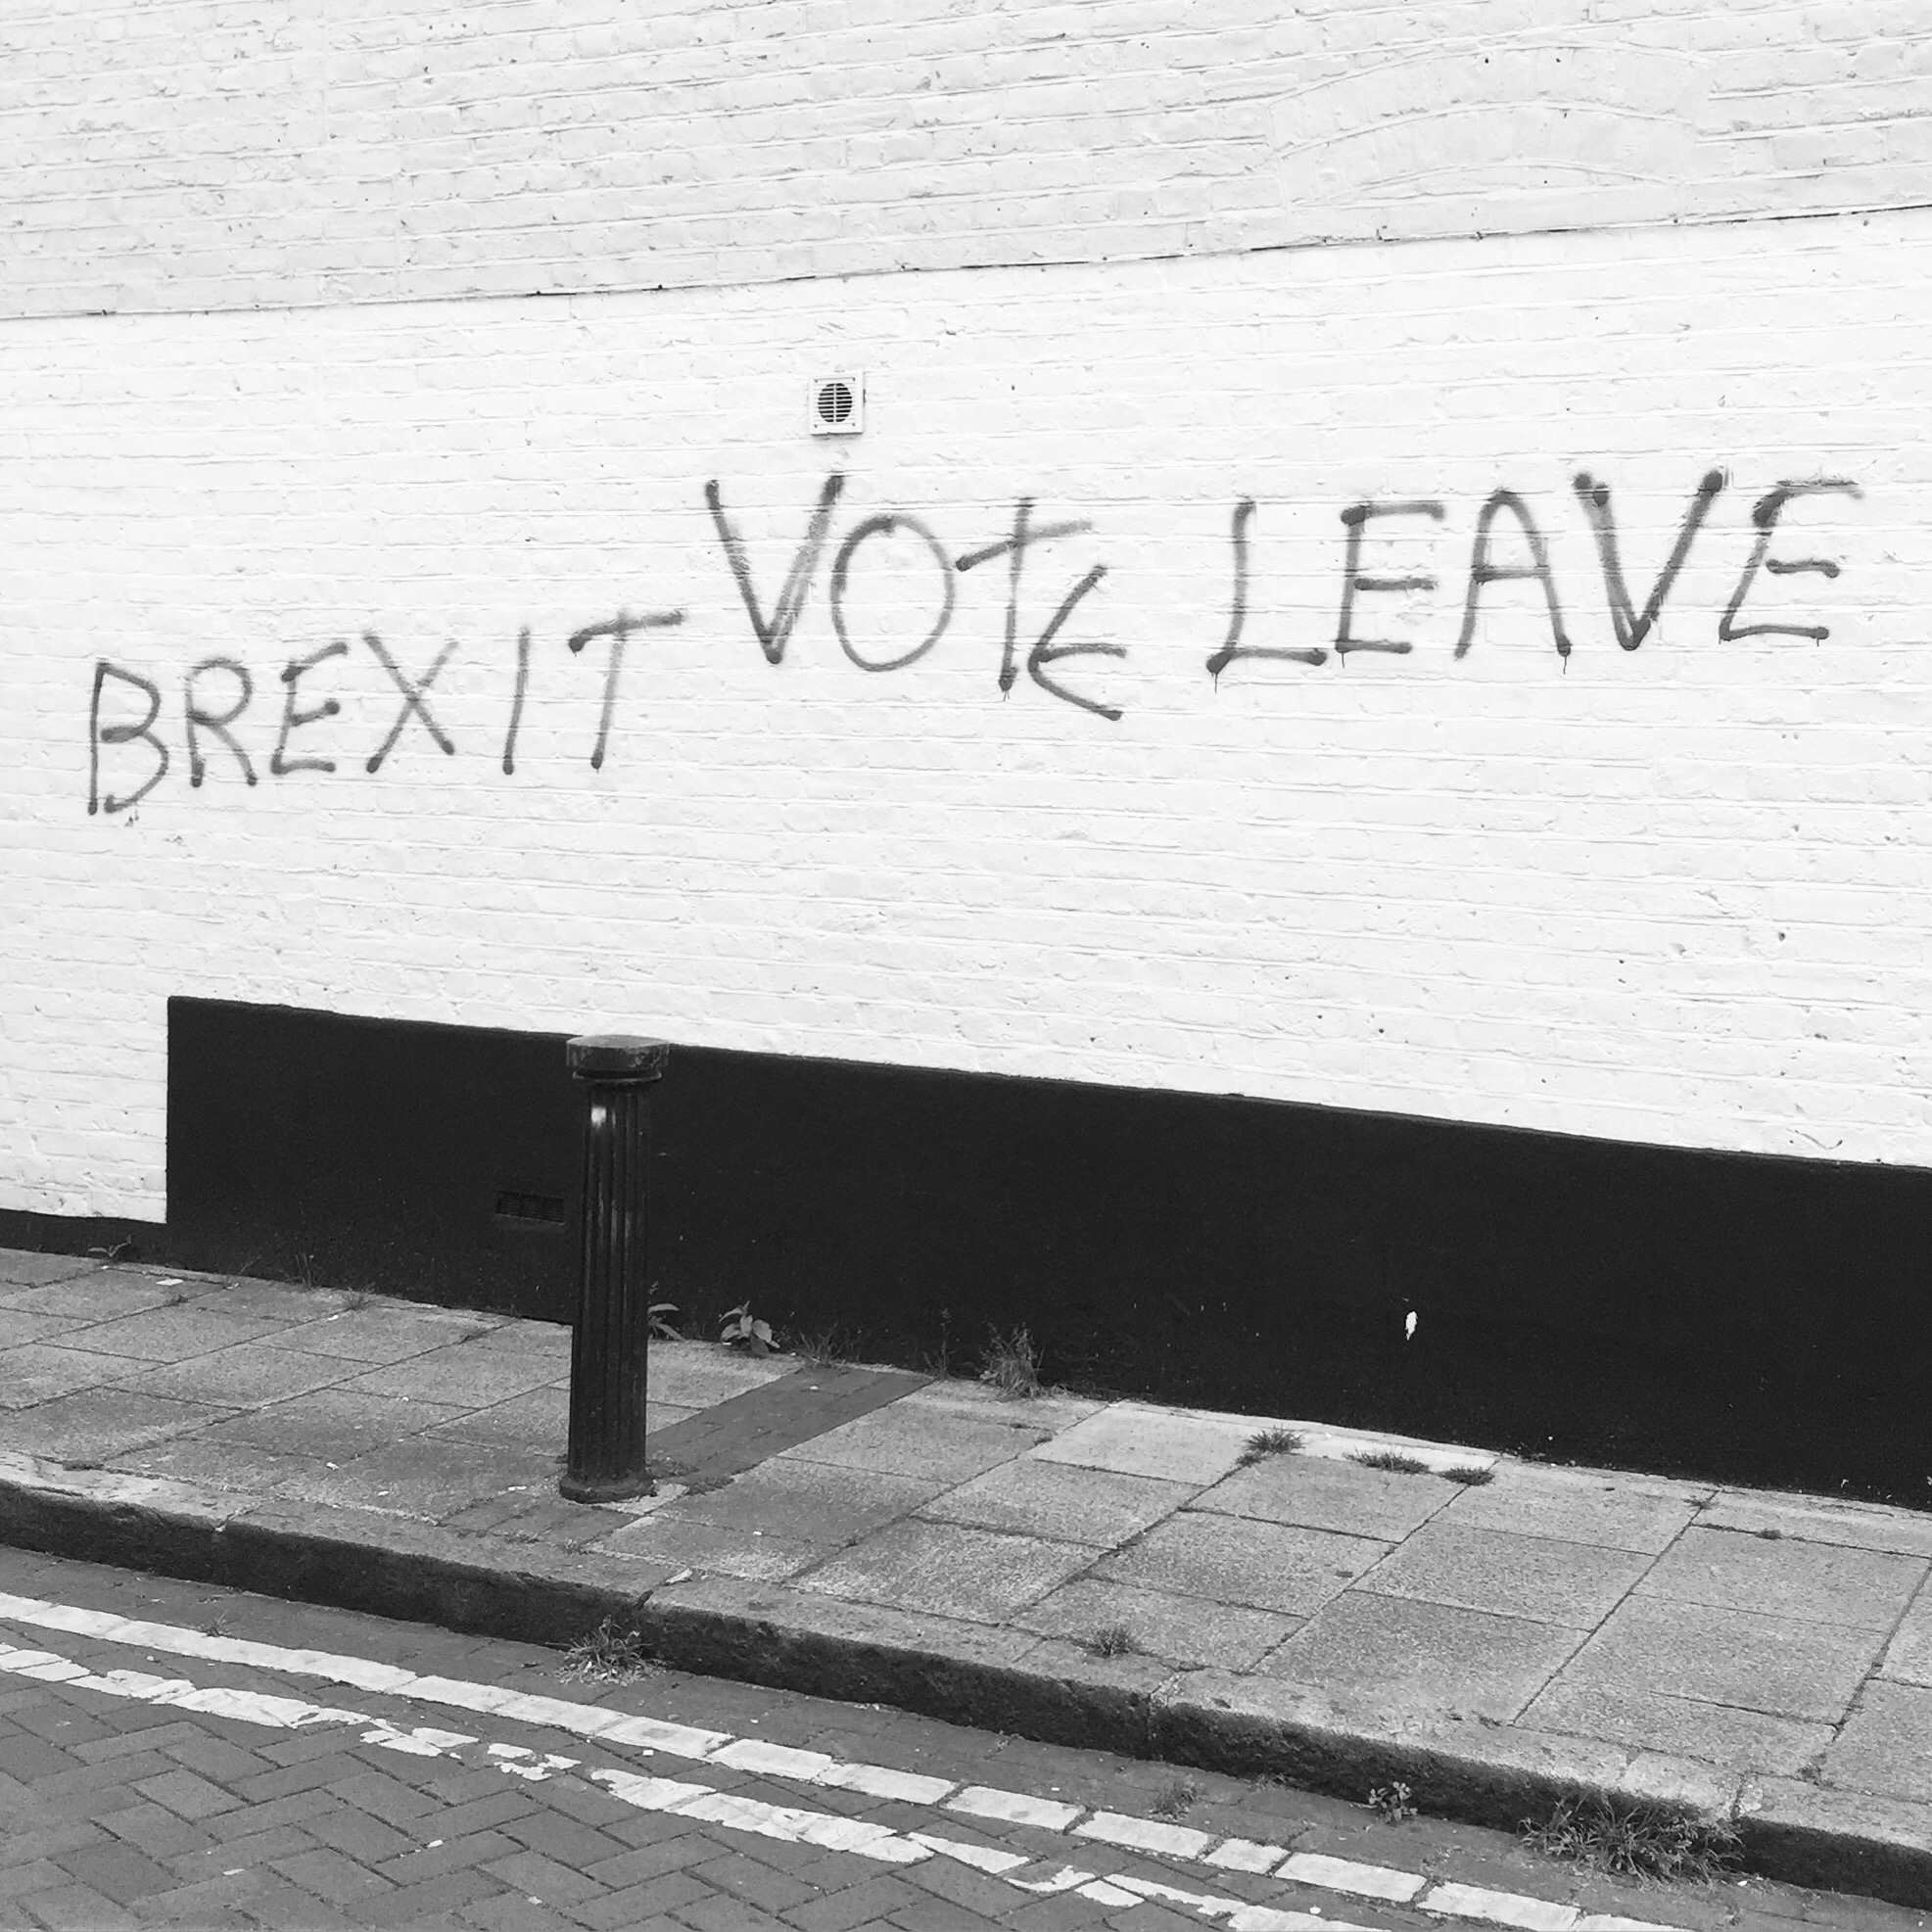 BREXIT VOtE LEAVE